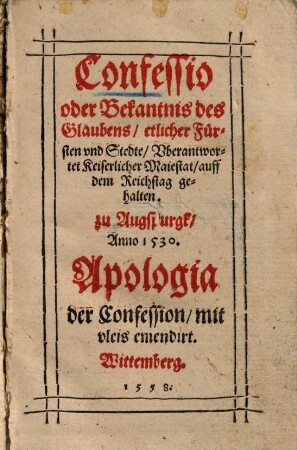 Confessio
oder Bekantnis des
Glaubens/ etlicher Für-
sten vnd Stedte/ Vberantwor-
tet Keiserlicher Maiestat/ auff
dem Reichstag ge-
halten.
zu Augspurgk/
Anno 1530.
Apologia
der Confession/ mit
vleis emendirt.
Wittemberg.
1558.